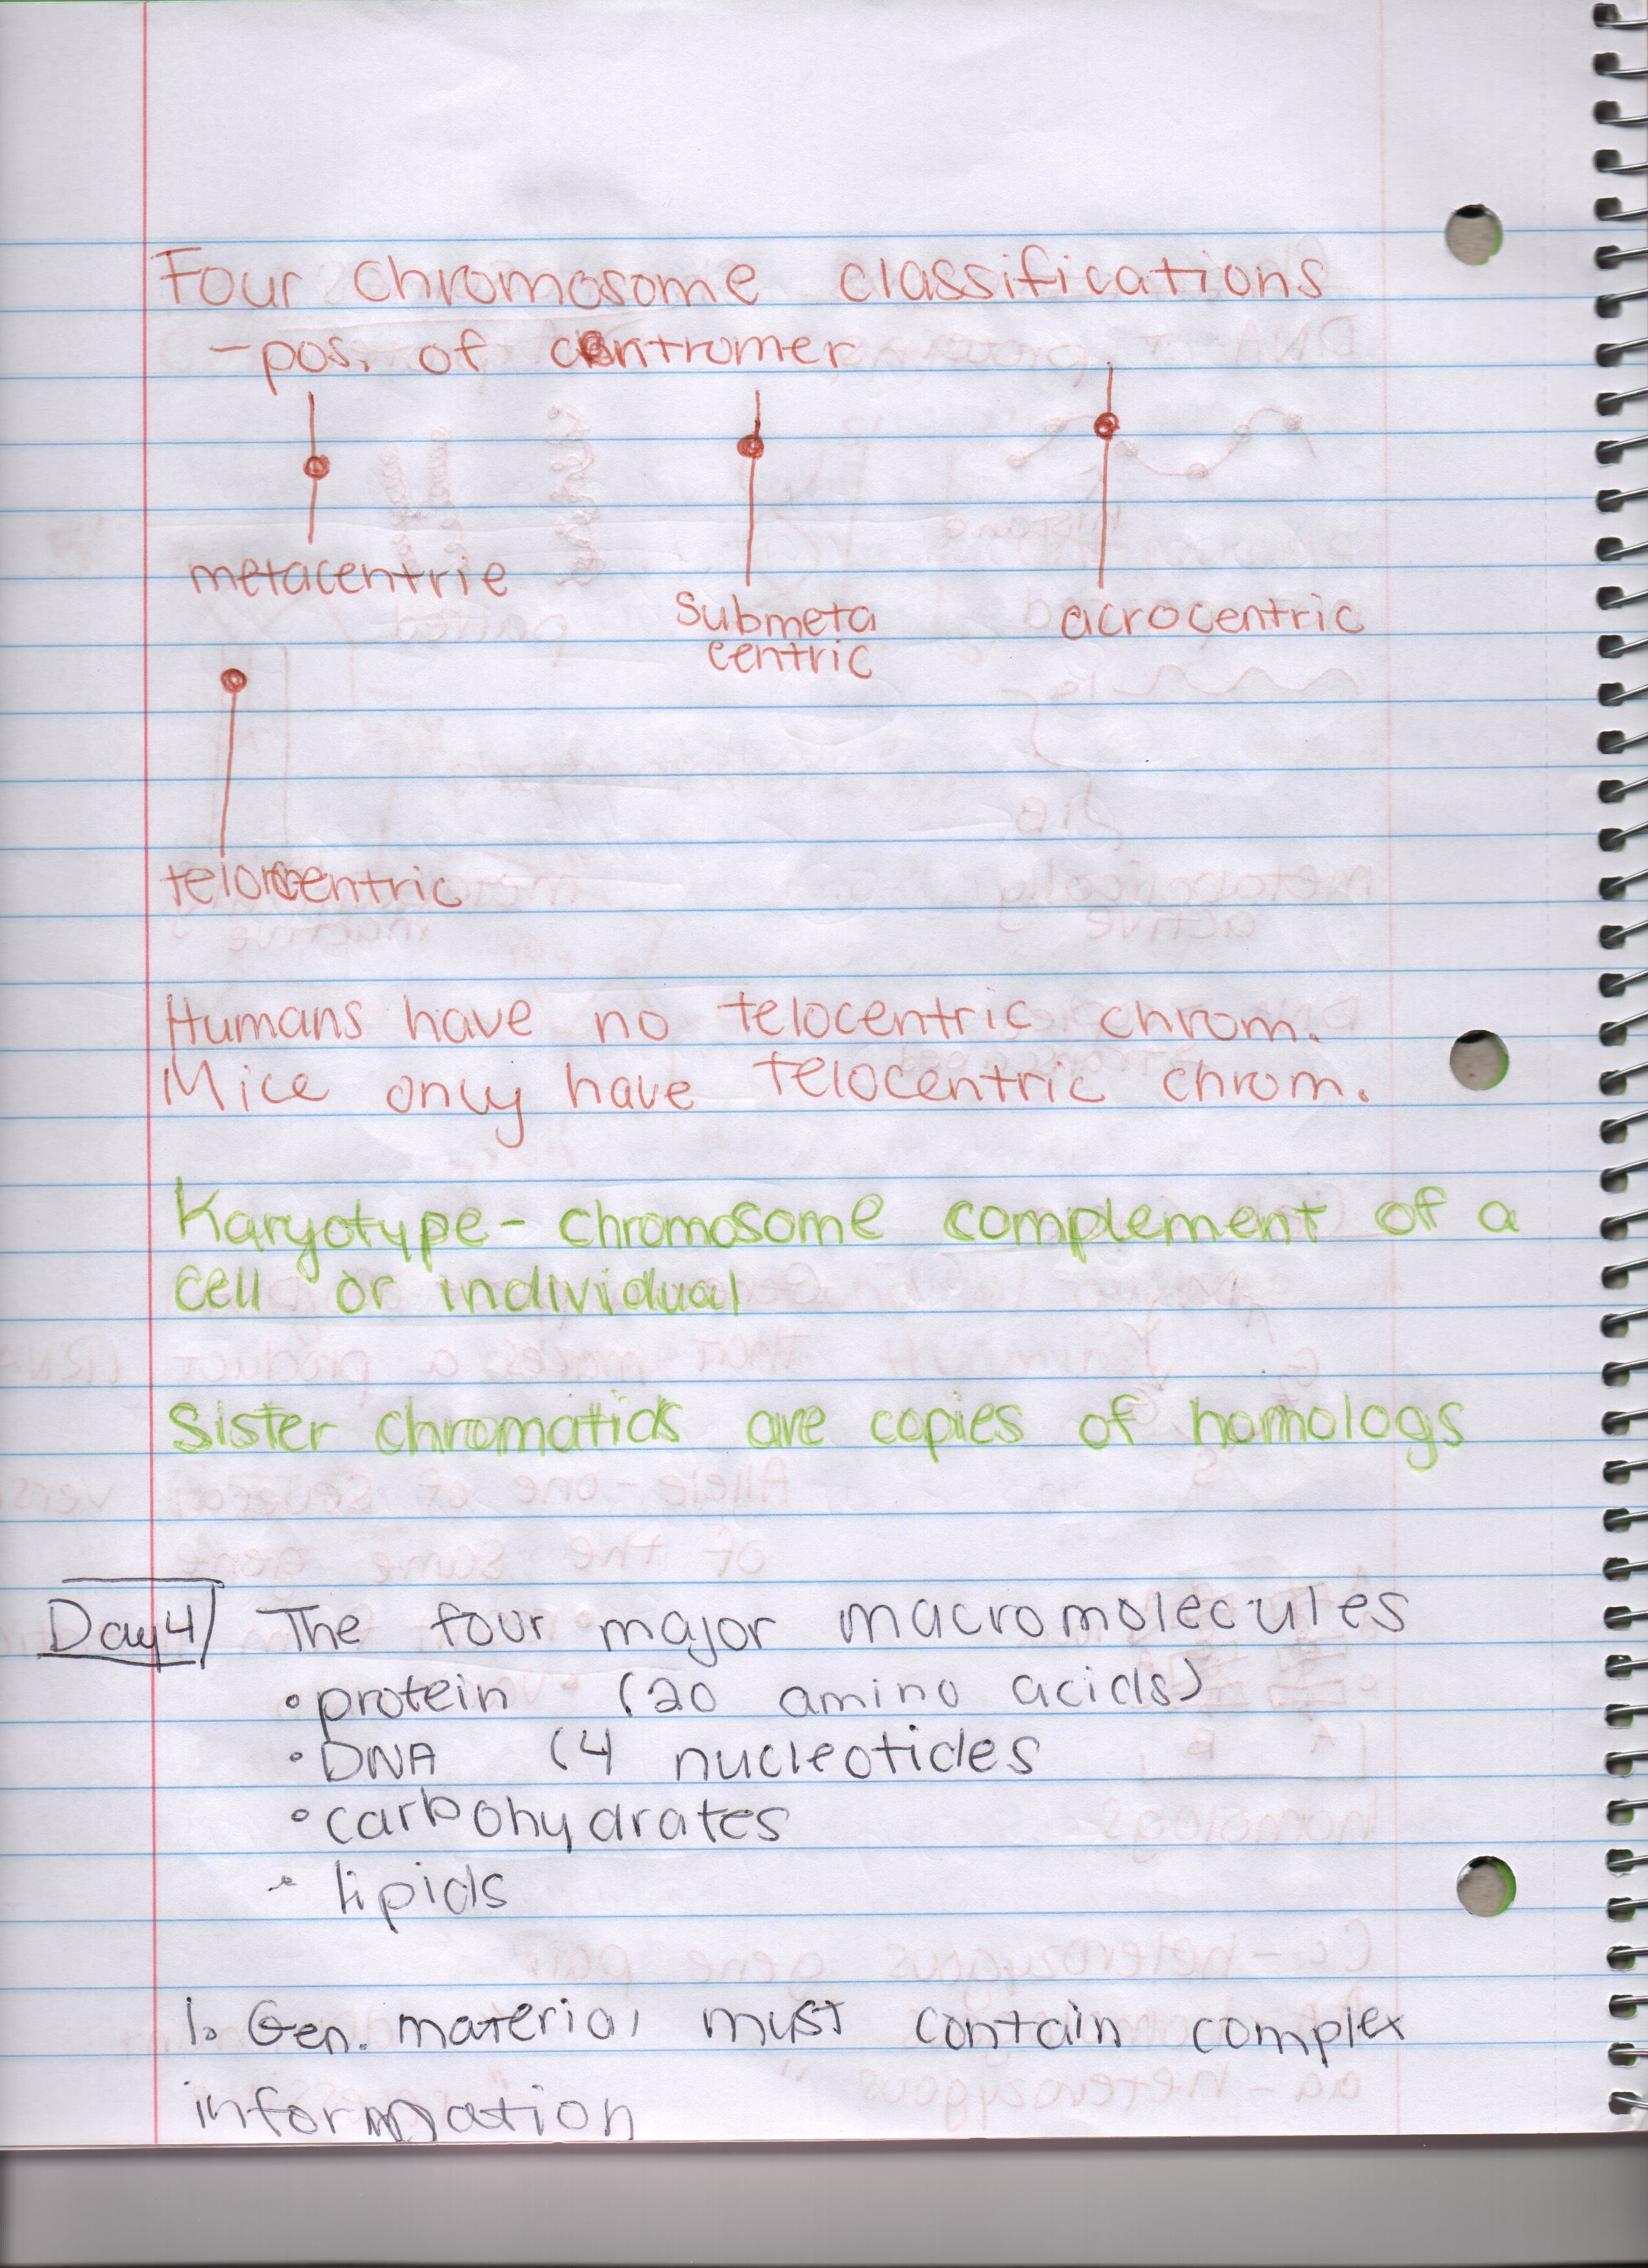 Four chromosome classifications
- pos. of centromer
metacentric
Submeta
centric
acrocentric
telocentric
Humans have no telocentric chrom.
Mice only have telocentric chrom.
Karyotype - chromosome complement of a
cell or individual
Sister chromatids are copies of homologs
Day 4 The four major macromolecules
• protein (20 amino acids)
• DNA (4 nucleotides
• carbohydrates
• lipids
1. Gen. material must contain complex
information